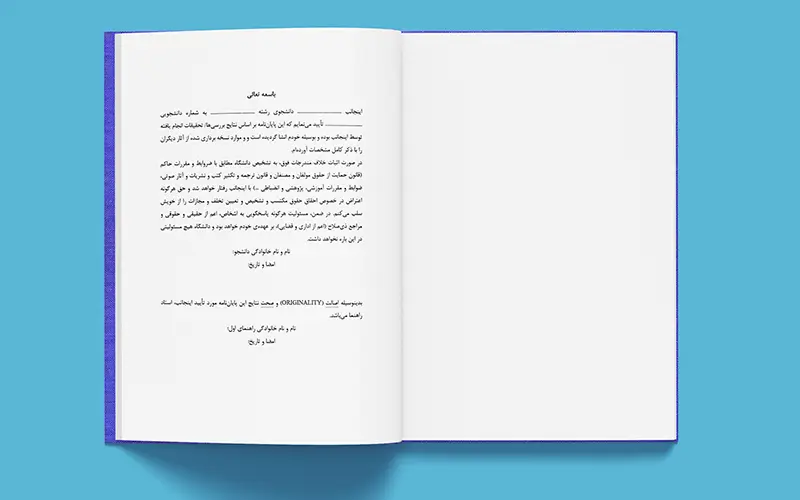 باسمه تعالی
اینجانب ........................ دانشجوی رشته ........................ به شماره دانشجویی
........................ تأیید می‌نمایم که این پایان‌نامه بر اساس نتایج بررسی‌ها/ تحقیقات انجام یافته
توسط اینجانب بوده و بوسیله خودم انشا گردیده است و و موارد نسخه برداری شده از آثار دیگران
را با ذکر کامل مشخصات آورده‌ام.
در صورت اثبات خلاف مندرجات فوق، به تشخیص دانشگاه مطابق با ضوابط و مقررات حاکم
(قانون حمایت از حقوق مولفان و مصنفان و قانون ترجمه و تکثیر کتب و نشریات و آثار صوتی،
ضوابط و مقررات آموزشی، پژوهشی و انضباطی ...) با اینجانب رفتار خواهد شد و حق هرگونه
اعتراض در خصوص احقاق حقوق مکتسب و تشخیص و تعیین تخلف و مجازات را از خویش
سلب می‌کنم. در ضمن، مسئولیت هرگونه پاسخگویی به اشخاص، اعم از حقیقی و حقوقی و
مراجع ذی‌صلاح (اعم از اداری و قضایی)، بر عهده‌ی خودم خواهد بود و دانشگاه هیچ مسئولیتی
در این باره نخواهد داشت.
نام و نام خانوادگی دانشجو:
امضا و تاریخ:
بدینوسیله اصالت (ORIGINALITY) و صحت نتایج این پایان‌نامه مورد تأیید اینجانب، استاد
راهنما می‌باشد.
نام و نام خانوادگی راهنمای اول:
امضا و تاریخ: